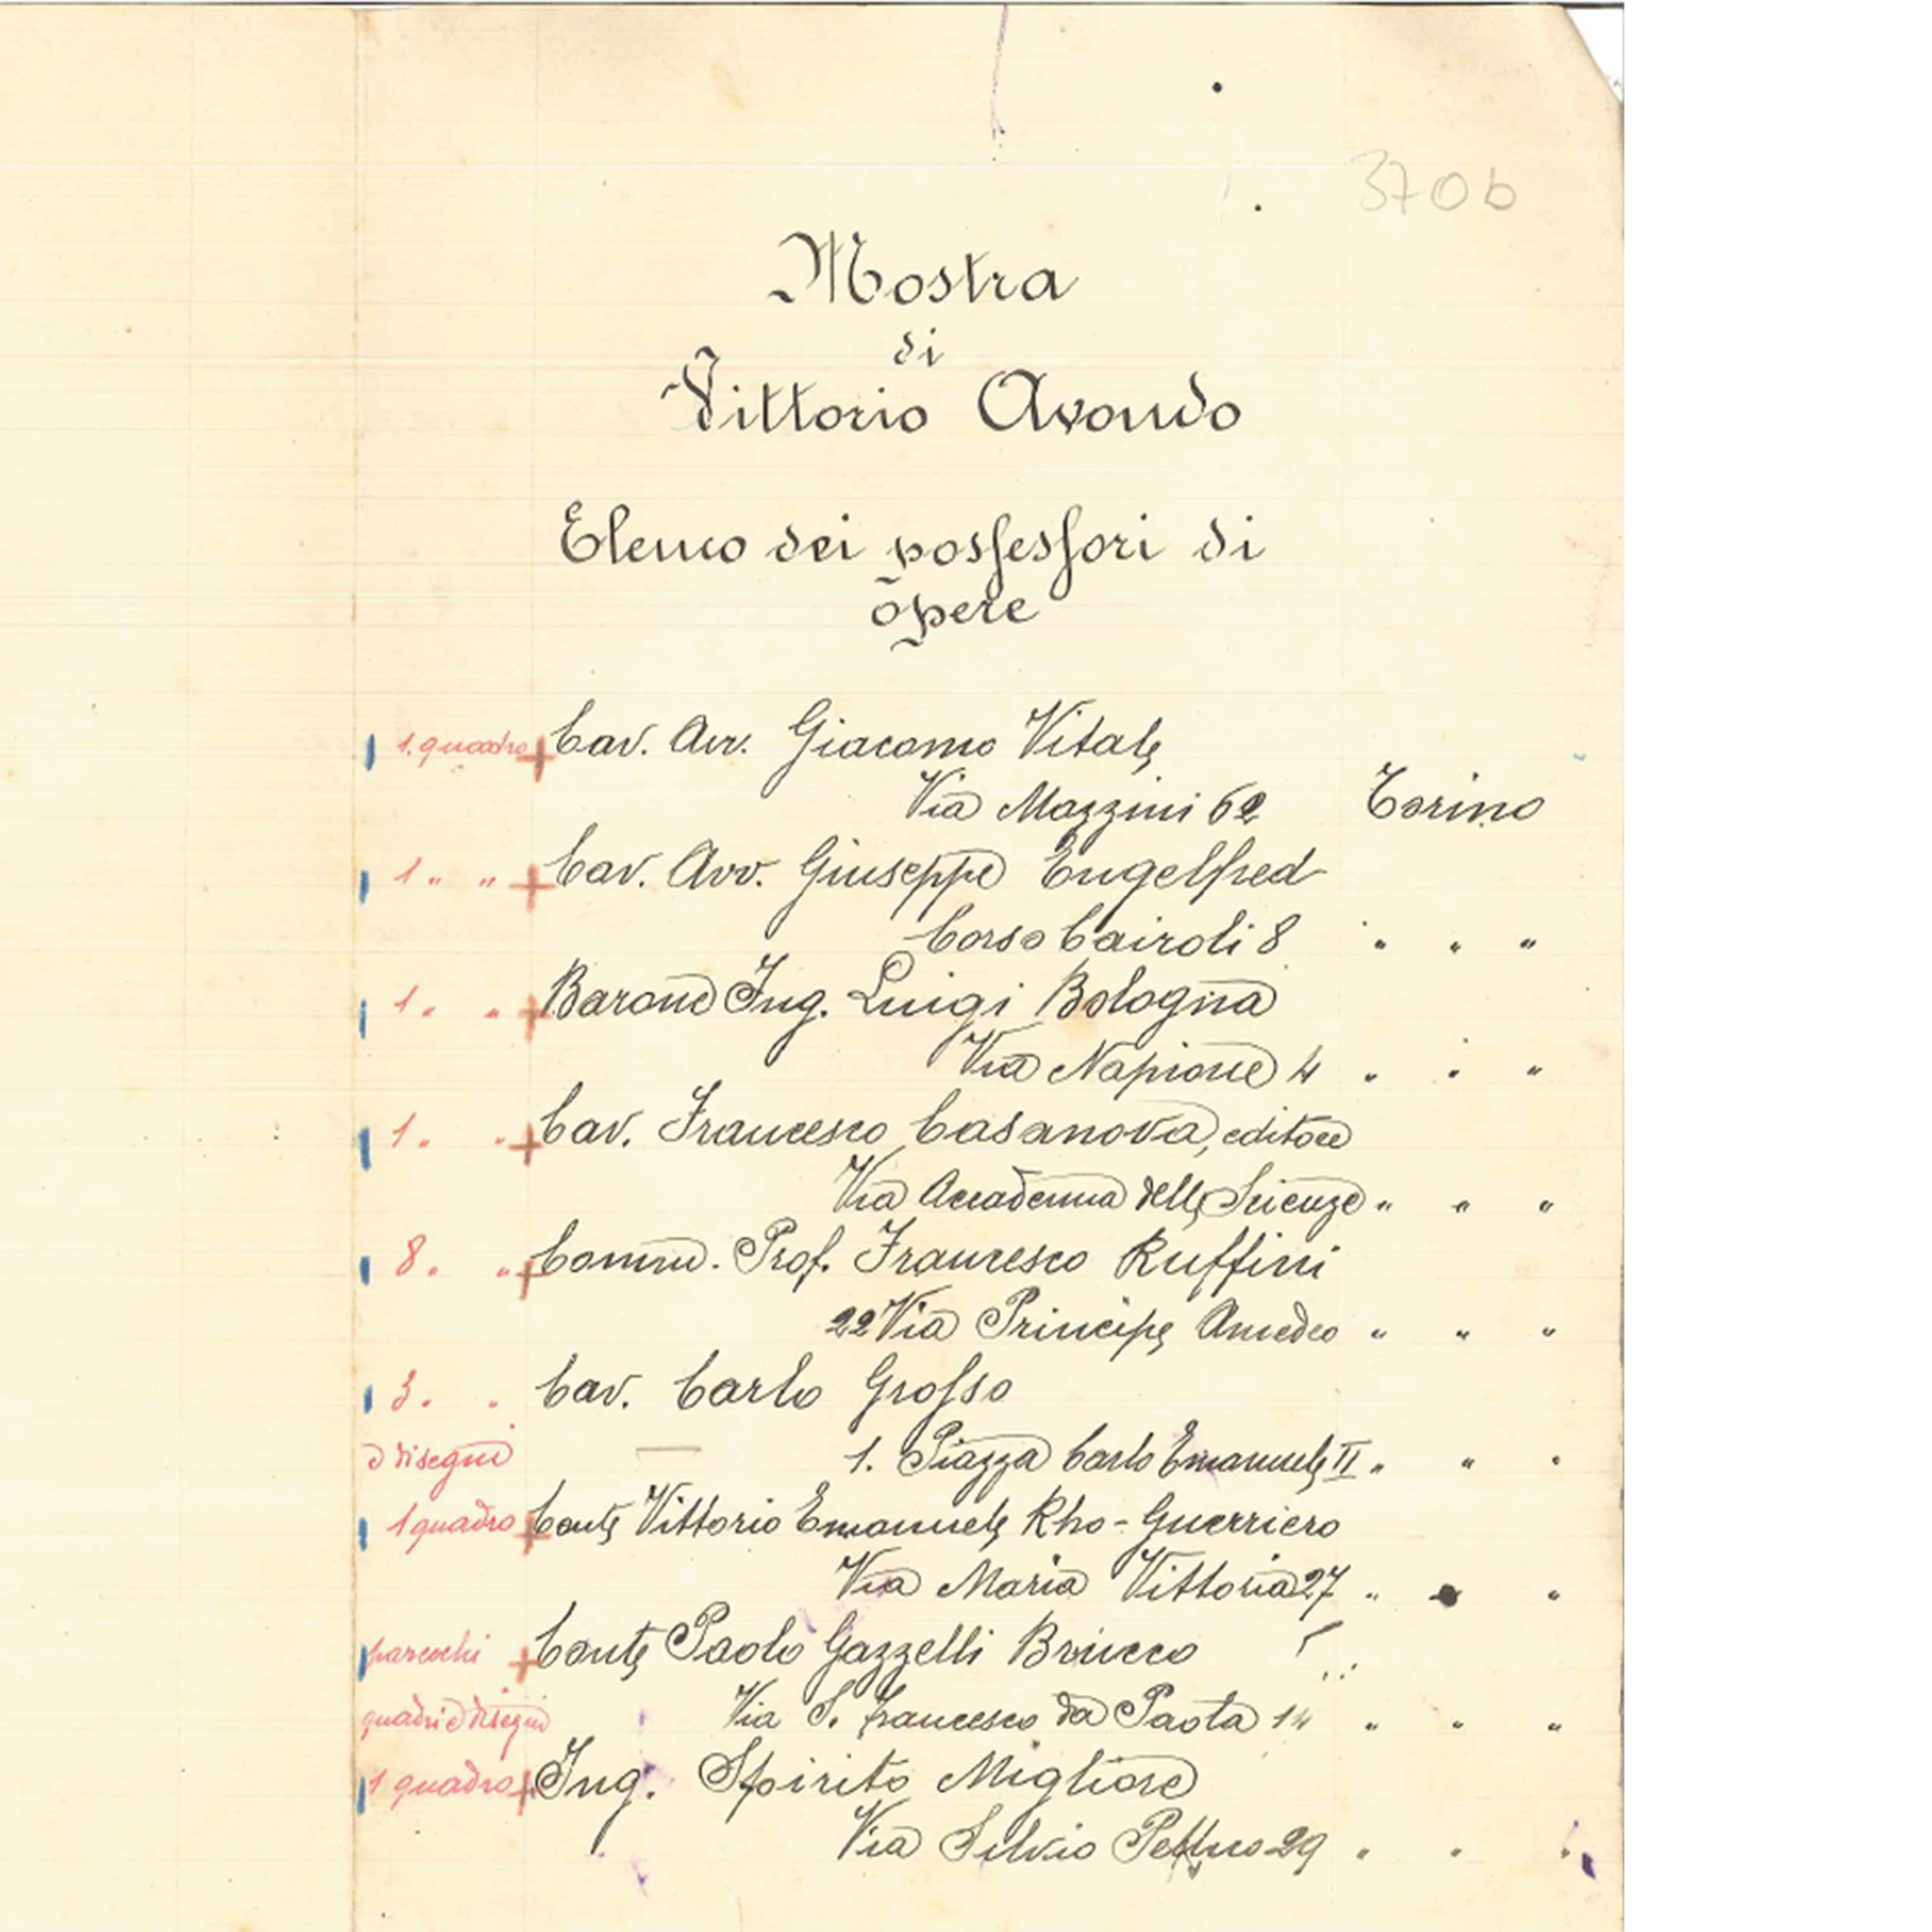 370b
Mostra
di
Vittorio Avondo
Elenco dei possessori di
opere
1. quadro + Cav. Avv. Giacomo Vitale
Via Mazzini 62 Torino
1 " " + Cav. Avv. Giuseppe Engelfred
Corso Cairoli 8 " " "
1. " + Barone Ing. Luigi Bologna
Via Napione 4 " " "
1. " + Cav. Francesco Casanova, editore
Via Accademia delle Scienze " " "
8. " + Comm. Prof. Francesco Ruffini
22 Via Principe Amedeo " " "
3. " Cav. Carlo Grosso
e disegni 1. Piazza Carlo Emanuele II " " "
1 quadro + Conte Vittorio Emanuele Rho-Guerriero
Via Maria Vittoria 27 " " "
parecchi + Conte Paolo Gazzelli Brucco
quadri e disegni Via S. Francesco da Paola 14 " " "
1 quadro + Ing. Spirito Migliore
Via Silvio Pellico 29 " " "